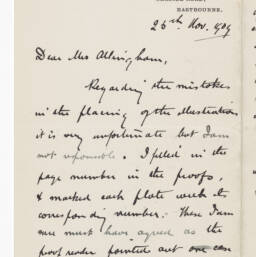 EASTBOURNE.
25th Nov. 1909
Dear Mrs Allingham,
Regarding the mistakes
in the placing of the illustrations
it is very unfortunate but I am
not responsible. I filled in the
page number in the proofs,
& marked each plate with its
corresponding number: these I am
sure must have agreed as the
proof reader pointed out one